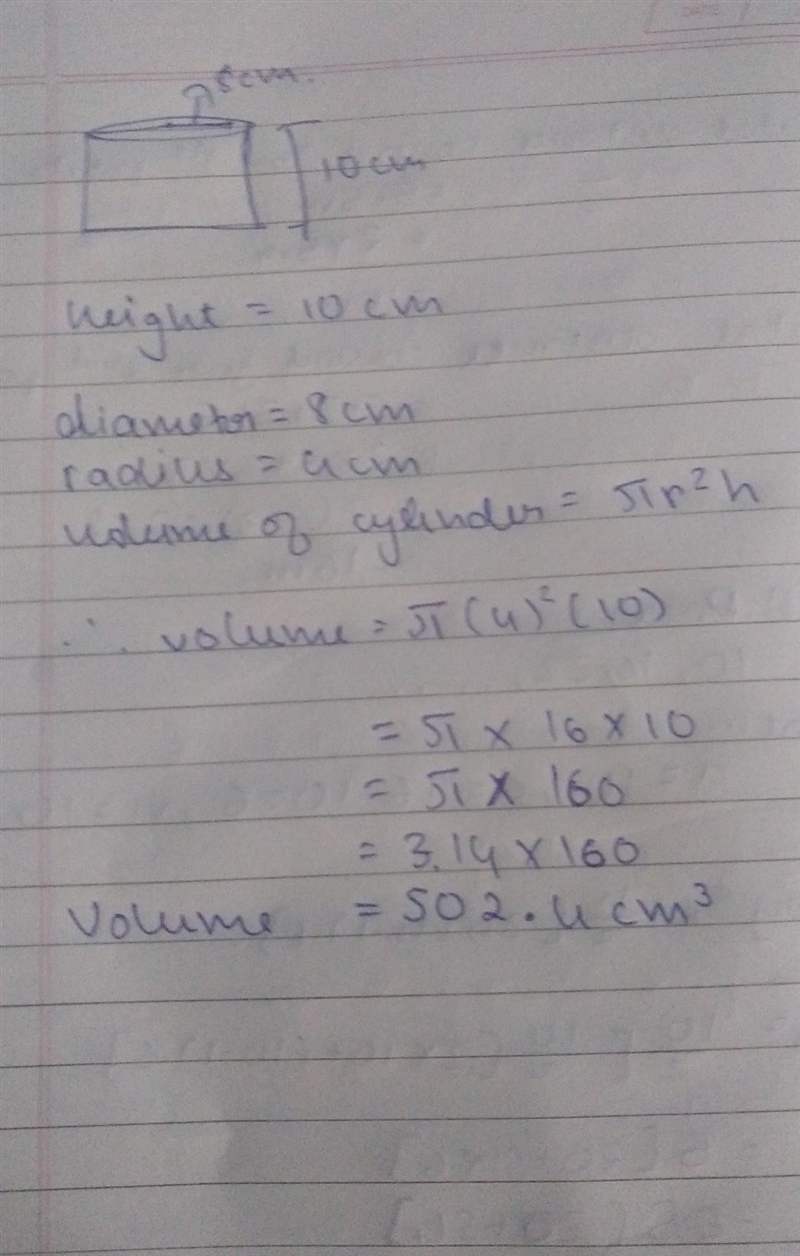 DATE
8cm.
10cm
height = 10 cm
diameter = 8 cm
radius = 4cm
volume of cylinder = πr²h
∴ volume = π(4)²(10)
= π × 16 × 10
= π × 160
= 3.14 × 160
Volume = 502.4 cm³